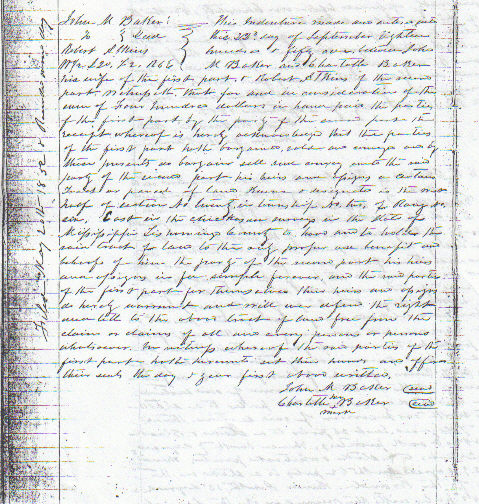 John M Baker
This Indenture made and entered into
To } Deed
this 22d day of September Eighteen
Robert S Akins
hundred & fifty between John
M Baker and Charlotte Baker
his wife of the first part, & Robert S Akins of the second
part Witnesseth that for and in consideration of the
sum of Four Hundred dollars in hand paid the parties
of the first part by the party of the second part the
receipt whereof is hereby acknowledged that the parties
of the first part hath bargained, sold and conveyed and by
these presents do bargain sell and convey unto the said
party of the second part his heirs and assigns a certain
Tract or parcel of land Known & designated as the
half of section No in Township No two, of Range No
six, East in the chickasaw survey in the State of
Mississippi Tishomingo County to have and to hold the
said tract of land to the only proper use benefit and
behoof of him the party of the second part his heirs
and assigns in fee simple forever, and the said parties
of the first part for themselves their heirs and assigns
do hereby warrant and will ever defend the right
and title to the above tract of land free from the
claim or claims of all and every person or persons
whatsoever. In witness whereof the said parties of the
first part hath hereunto set their hands and affixed
their seals the day & year first above written,
John M Baker (seal)
Charlotte her Baker (seal)
mark
Filed May 21th 1852 & Recorded